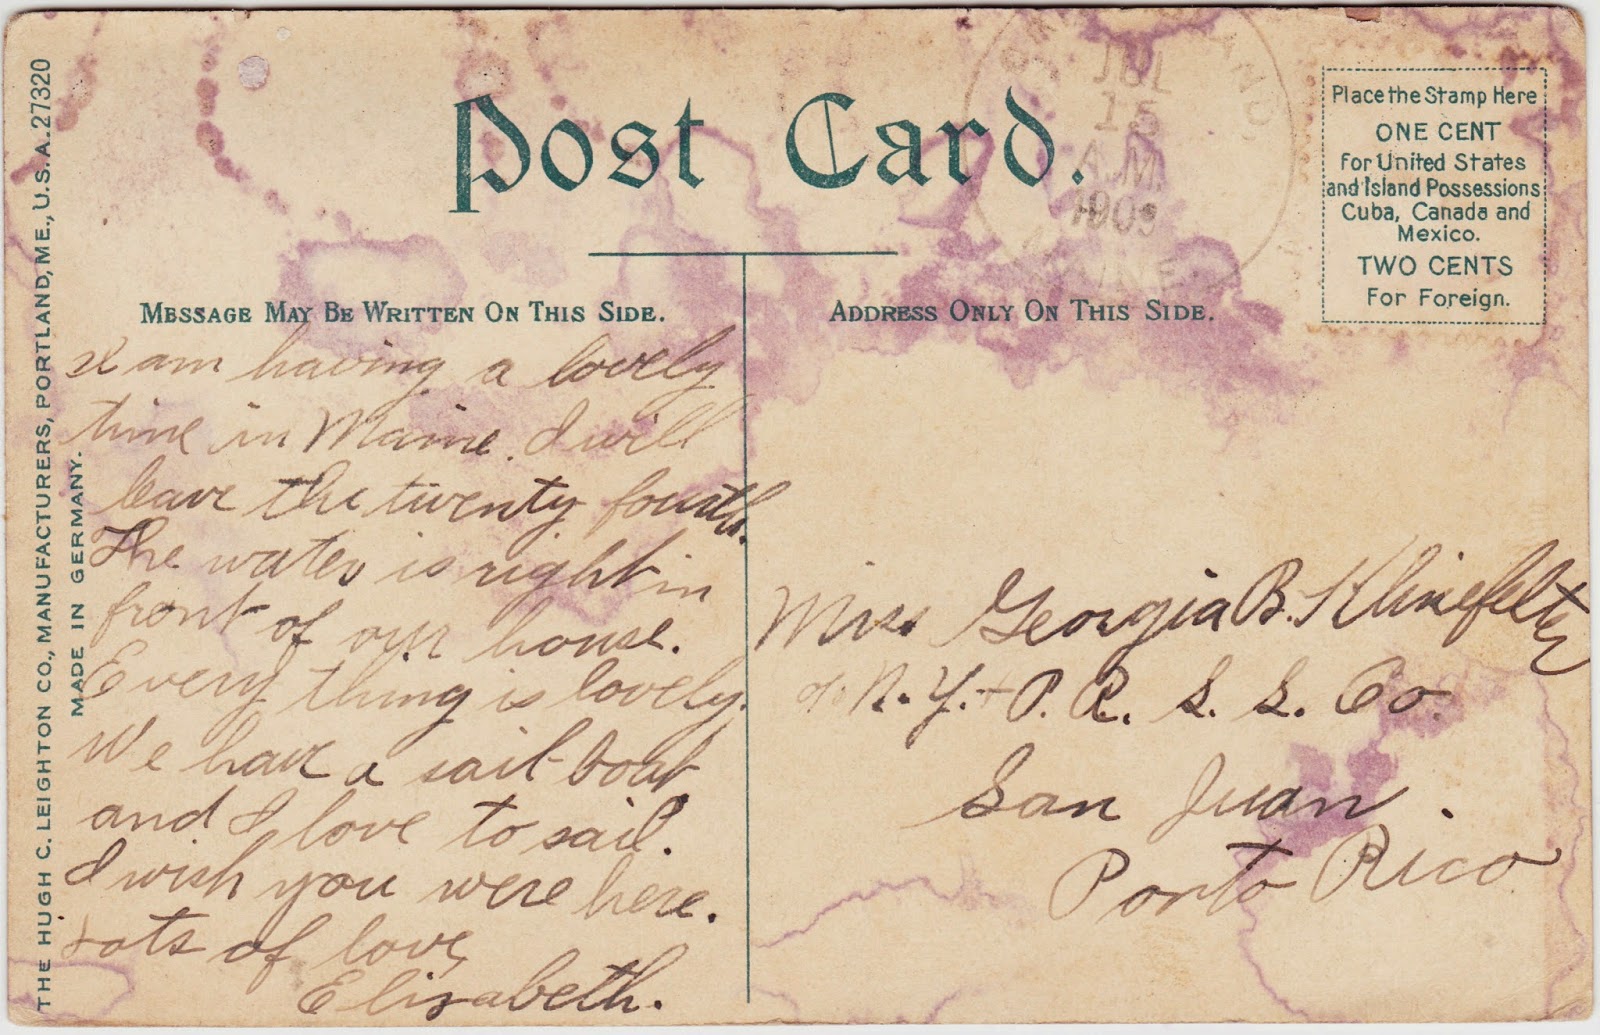 Post Card.
JUL
15
A.M.
1909
MAINE
Place the Stamp Here
ONE CENT
For United States
and Island Possessions
Cuba, Canada and
Mexico.
TWO CENTS
For Foreign.
MESSAGE MAY BE WRITTEN ON THIS SIDE.
ADDRESS ONLY ON THIS SIDE.
THE HUGH C. LEIGHTON CO., MANUFACTURERS, PORTLAND, ME., U.S.A. 27320
MADE IN GERMANY.
I am having a lovely
time in Maine. I will
leave the twenty fourth.
The water is right in
front of our house.
Every thing is lovely.
We have a sail-boat
and I love to sail.
I wish you were here.
Lots of love,
Elizabeth.
Miss Georgia B. Klinefelter
c/o N.Y. + P.R. S.S. Co.
San Juan.
Porto Rico